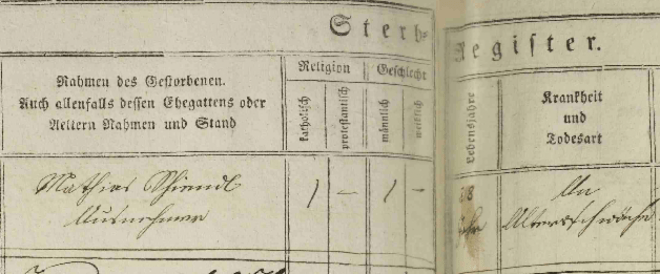 Sterb-
Register.
Nahmen des Gestorbenen.
Auch allenfalls dessen Ehegattens oder
Aeltern Nahmen und Stand
Religion
katholisch
protestantisch
Geschlecht
männlich
weiblich
Lebensjahre
Krankheit
und
Todesart
Mathias
Ausnehmer
1 – 1 –
An
Altersschwäche